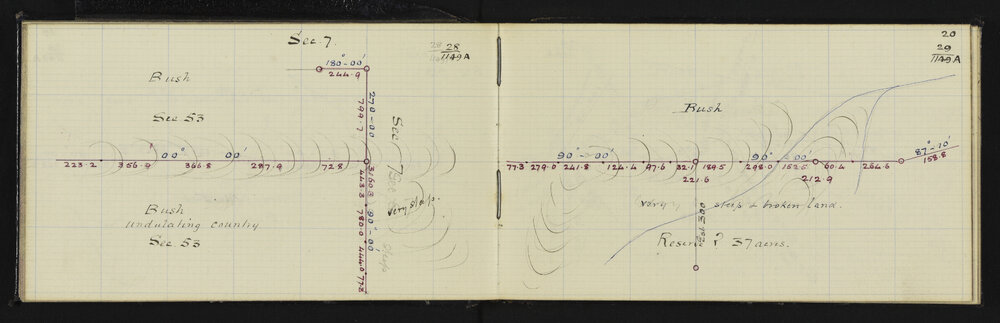 Sec 7
28
1149A
180°-00'
244.9
Bush
Sec 53
799.7
270-00'
Sec 7
223.2 356.9 00° 366.8 00' 287.9 72.8
443.3
780.0
444.0
77.3
90°-00'
very steep.
Bush
undulating country
Sec 53
20
29
1149A
Bush
90°-00'
77.3 279.0 241.8 124.4 97.6 32.1 189.5 298.0 152.5 60.4 264.6
90°-00'
87°-10'
158.8
221.6
212.9
very steep & broken land.
Reserve 37 acres.